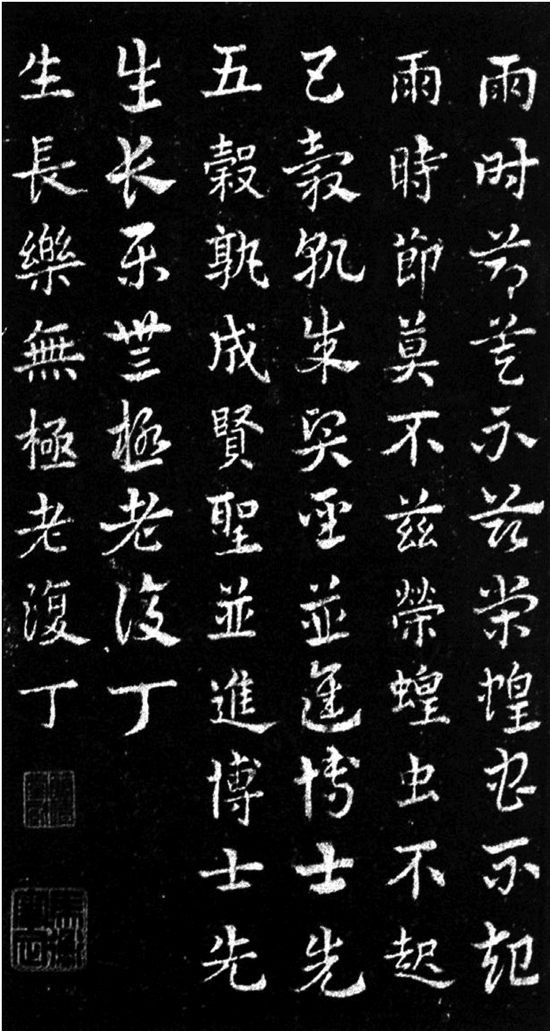 雨时節莫不茲榮蝗虫不起
雨時節莫不茲榮蝗虫不起
五穀孰成賢聖並進博士先
五穀孰成賢聖並進博士先
生长乐無極老復丁
生長樂無極老復丁